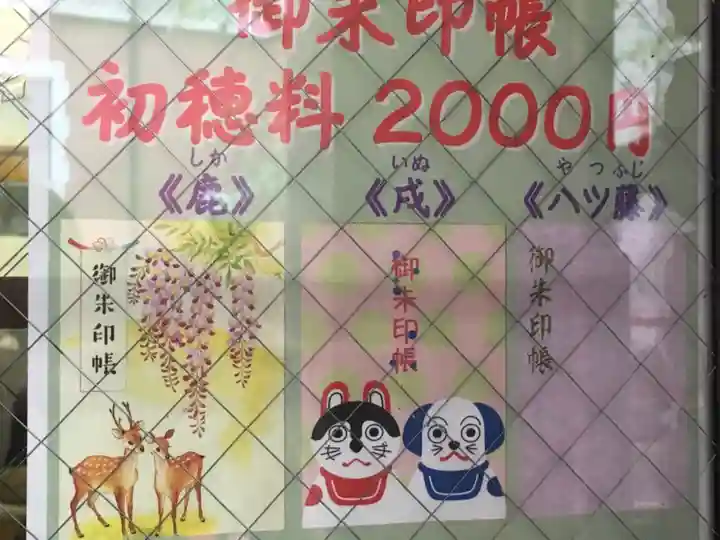 御朱印帳
初穂料 2000円
しか
《鹿》
いぬ
《戌》
やつふじ
《八ツ藤》
御朱印帳
御朱印帳
御朱印帳